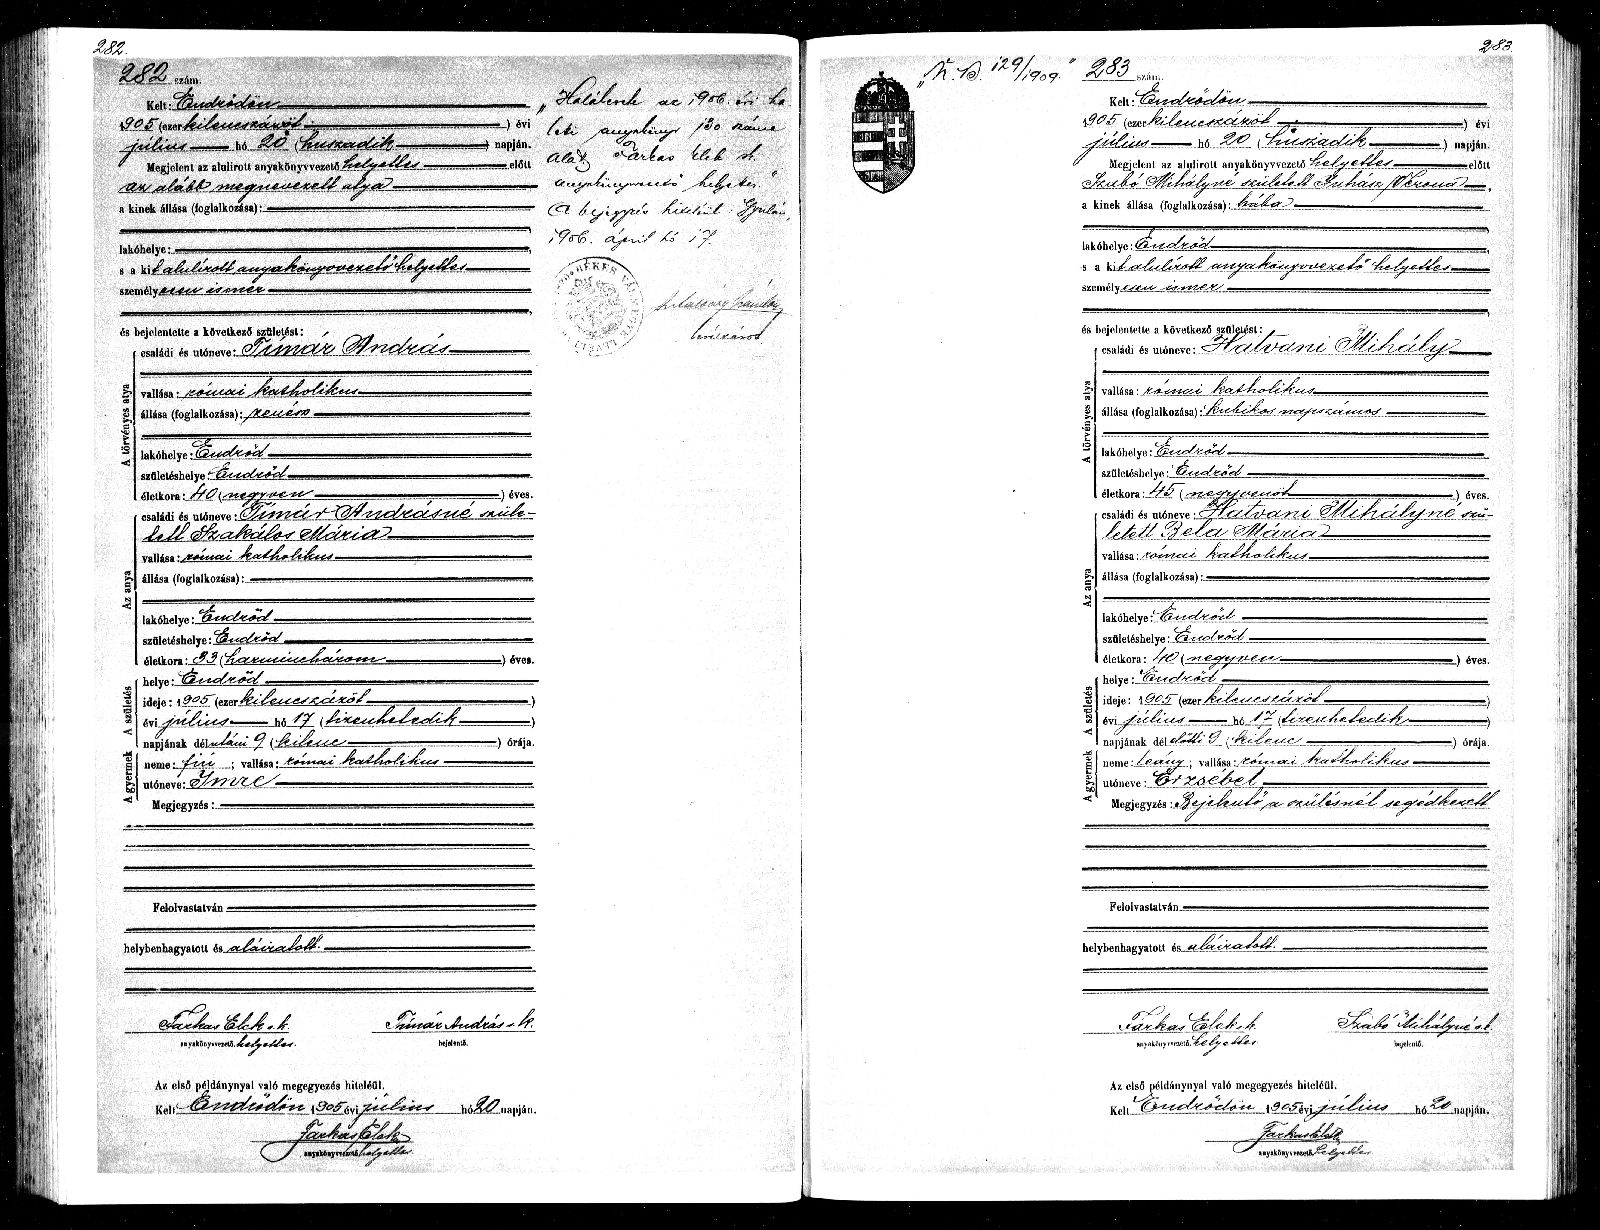 282.
282 szám.
Kelt: Endrődön
1905 (ezerkilencszázöt) évi
július hó 20 (huszadik) napján.
Megjelent az alulirott anyakönyvvezető helyettes előtt
az alább megnevezett atya
a kinek állása (foglalkozása):
lakóhelye:
s a kit alulírott anyakönyvvezető helyettes
személyesen ismer
és bejelentette a következő születést:
A törvényes atya
családi és utóneve: Tímár András
vallása: római katholikus
állása (foglalkozása): zenész
lakóhelye: Endrőd
születéshelye: Endrőd
életkora: 40 (negyven) éves.
Az anya
családi és utóneve: Tímár Andrásné szüle-
tett Szakálos Mária
vallása: római katholikus
állása (foglalkozása):
lakóhelye: Endrőd
születéshelye: Endrőd
életkora: 33 (harminchárom) éves.
A születés
helye: Endrőd
ideje: 1905 (ezerkilencszázöt)
évi július hó 17 (tizenhetedik)
napjának délutáni 9 (kilenc) órája.
A gyermek
neme: fiú; vallása: római katholikus
utóneve: Imre
Megjegyzés:
Felolvastatván
helybenhagyatott és aláíratott.
Farkas Elek s. k. Tímár András s. k.
anyakönyvvezető. helyettes. bejelentő.
Az első példánynyal való megegyezés hiteléül.
Kelt Endrődön 1905 évi július hó 20 napján.
Farkas Elek
anyakönyvvezető. helyettes
„Halálozás az 1906. évi ha
lotti anyakönyv 130 száma
alatt Farkas Elek sk.
anyakönyvvezető helyettes."
A bejegyzés hiteléül: Gyulán,
1906. április hó 17.
BÉKÉS
283.
„K. B. 129/1909."
283 szám.
Kelt: Endrődön
1905 (ezerkilencszázöt) évi
július hó 20 (huszadik) napján.
Megjelent az alulirott anyakönyvvezető helyettes előtt
Szabó Mihályné született Juhász Verona,
a kinek állása (foglalkozása): bába
lakóhelye: Endrőd
s a kit alulírott anyakönyvvezető helyettes
személyesen ismer
és bejelentette a következő születést:
A törvényes atya
családi és utóneve: Hatvani Mihály
vallása: római katholikus
állása (foglalkozása): kubikos napszámos
lakóhelye: Endrőd
születéshelye: Endrőd
életkora: 45 (negyvenöt) éves.
Az anya
családi és utóneve: Hatvani Mihályné szü-
letett Bela Mária
vallása: római katholikus
állása (foglalkozása):
lakóhelye: Endrőd
születéshelye: Endrőd
életkora: 40 (negyven) éves.
A születés
helye: Endrőd
ideje: 1905 (ezerkilencszázöt)
évi július hó 17 (tizenhetedik)
napjának délelőtti 9 (kilenc) órája.
A gyermek
neme: leány; vallása: római katholikus
utóneve: Erzsébet
Megjegyzés: Bejelentő a szülésnél segédkezett
Felolvastatván
helybenhagyatott és aláíratott.
Farkas Elek s. k. Szabó Mihályné s. k.
anyakönyvvezető. helyettes bejelentő.
Az első példánynyal való megegyezés hiteléül.
Kelt Endrődön 1905 évi július hó 20 napján.
Farkas Elek
anyakönyvvezető. helyettes